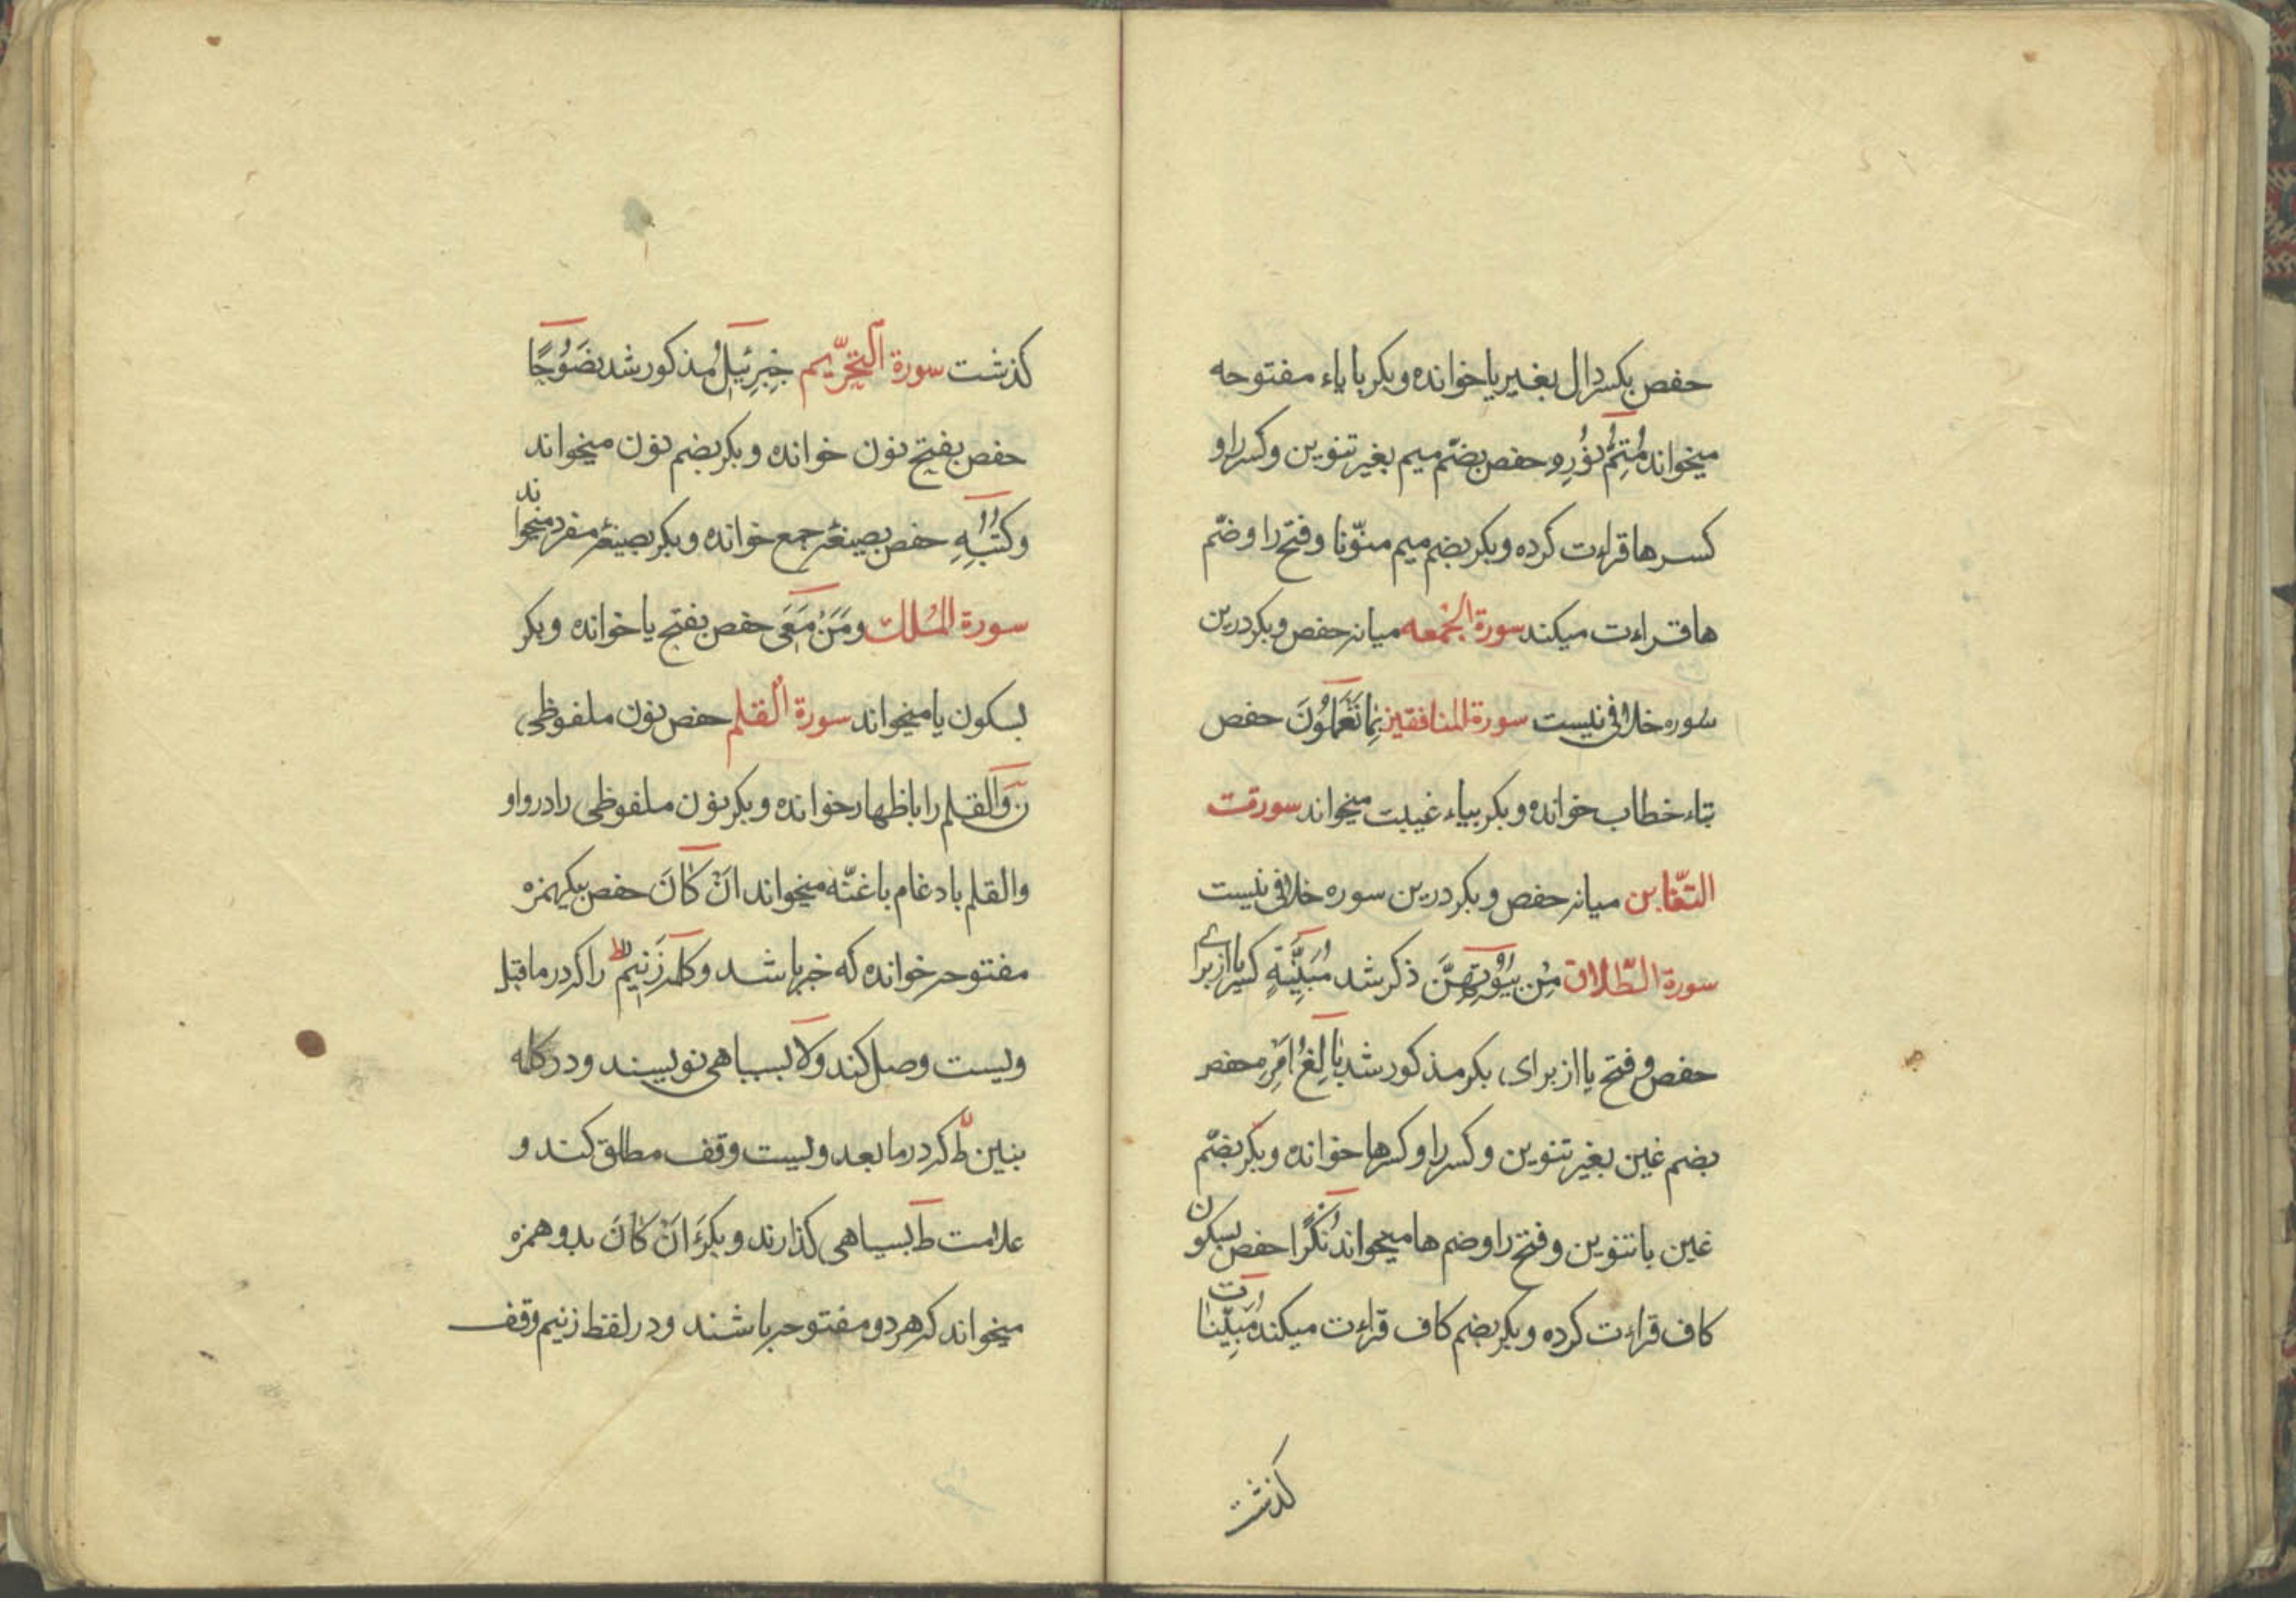 حفص بکسر دال بغیر یا خوانده و بکر با یاء مفتوحه
میخواند مُتِمُّ نُوُرِهِ حفص بضّم میم بغیر تنوین و کسر را و
کسر ها قراءت کرده و بکر بضم میم منوّنا و فتح را و ضّم
ها قراءت میکند سورة الجُمعه میانه حفص و بکر درین
سوره خلافی نیست سورة المنافقین بِمَا تَعْمَلُونَ حفص
بتاء خطاب خوانده و بکر بیاء غیبت میخواند سورت
التغّابن میانه حفص و بکر درین سوره خلافی نیست
سورة الطّلاق مِن بُیُوتِهِنَّ ذکر شد مُبَیِّنَةٍ کسر یا از برای
حفص و فتح یا از برای بکر مذکور شد بَالِغُ اَمْرِهِ حفص
بضم غین بغیر تنوین و کسر را و کسر ها خوانده و بکر بضّم
غین با تنوین و فتح را و ضم ها میخواند نُکْرًا حفص بسکون
کاف قراءت کرده و بکر بضم کاف قراءت میکند مُبَیِّنَات
کذشت
کذشت سورة التّحرّیم جِبرِئیلُ مذکور شد نصَوُحًا
حفص بفتح نون خوانده و بکر بضم نون میخواند
وَکُتُبِهِ حفص بصیغهٔ جمع خوانده و بکر بصیغهٔ مفرد میخواند
سورة المُلك وَمَن مَّعِیَ حفص بفتح یا خوانده و بکر
بسکون یا میخواند سورة القلم حفص نون ملفوظی
نٓ وَالقلم را باظهار خوانده و بکر نون ملفوظی را در واو
والقلم بادغام باغنّه میخواند انْ کَانَ حفص بیکهمزه
مفتوحه خوانده که خبر باشد و کلمه زَنِیمٍ ط را که در ماقبل
ویست وصل کند و لا بسیاهی نویسند و در کلمه
بنین ط که در مابعد ویست وقف مطلق کند و
علامت ط بسیاهی کذارند و بکر ءَانْ کَانَ بدو همزه
میخواند که هر دو مفتوحه باشند و در لفظ زنیم وقف